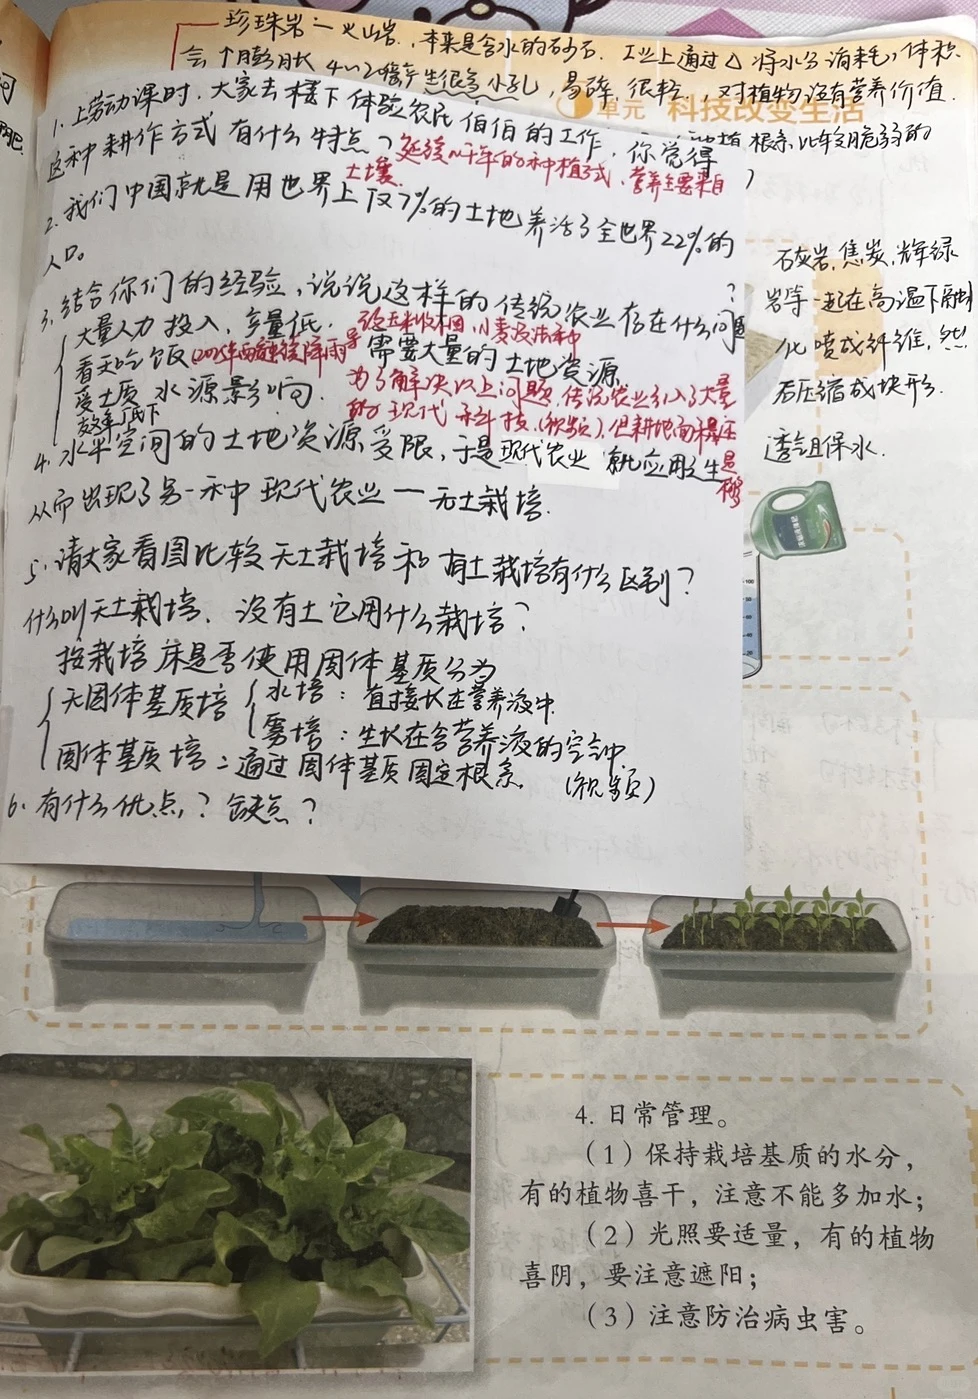 珍珠岩：一火山岩，本来是含水的矿石．工业上通过△将水分消耗，体积
会个膨胀 4～20倍产生很多小孔，易碎，很轻，对植物没有营养价值．
单元 科技改变生活
根系比较脆弱的
1．上劳动课时，大家去楼下体验农民伯伯的工作，你觉得
这种耕作方式有什么特点？
延续几千年的种植方式，营养主要来自
土壤．
2．我们中国就是用世界上仅7%的土地养活了全世界22%的
人口。
3．结合你们的经验，说说这样的传统农业存在什么问题？
大量人力投入，产量低．
看天吃饭
受土质 水源影响．
效率低下
需要大量的土地资源
为了解决以上问题，传统农业引入了大量
的现代科技(视频)，但耕地面积
4．水平空间的土地资源受限，于是现代农业就应用之生
从而出现了另一种现代农业一无土栽培．
5．请大家看图比较无土栽培和有土栽培有什么区别？
什么叫无土栽培，没有土它用什么栽培？
按栽培床是否使用固体基质分为
无固体基质培
水培：直接长在营养液中．
雾培：生长在含营养液的空气中．
固体基质培：通过固体基质固定根系． (视频)
6．有什么优点？缺点？
石灰岩，焦炭，辉绿
岩等一起在高温下融
化喷成纤维，然
后压缩成块形．
透气且保水．
4. 日常管理。
（1）保持栽培基质的水分，
有的植物喜干，注意不能多加水；
（2）光照要适量，有的植物
喜阴，要注意遮阳；
（3）注意防治病虫害。